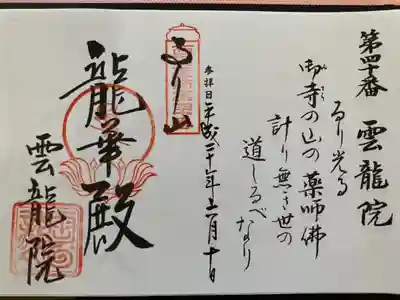 第四十番 雲龍院
るり光る
御寺の山の薬師佛
計り無き世の
道しるべなり
参拝日 平成二十年十二月十日
るり山
龍華殿
雲龍院